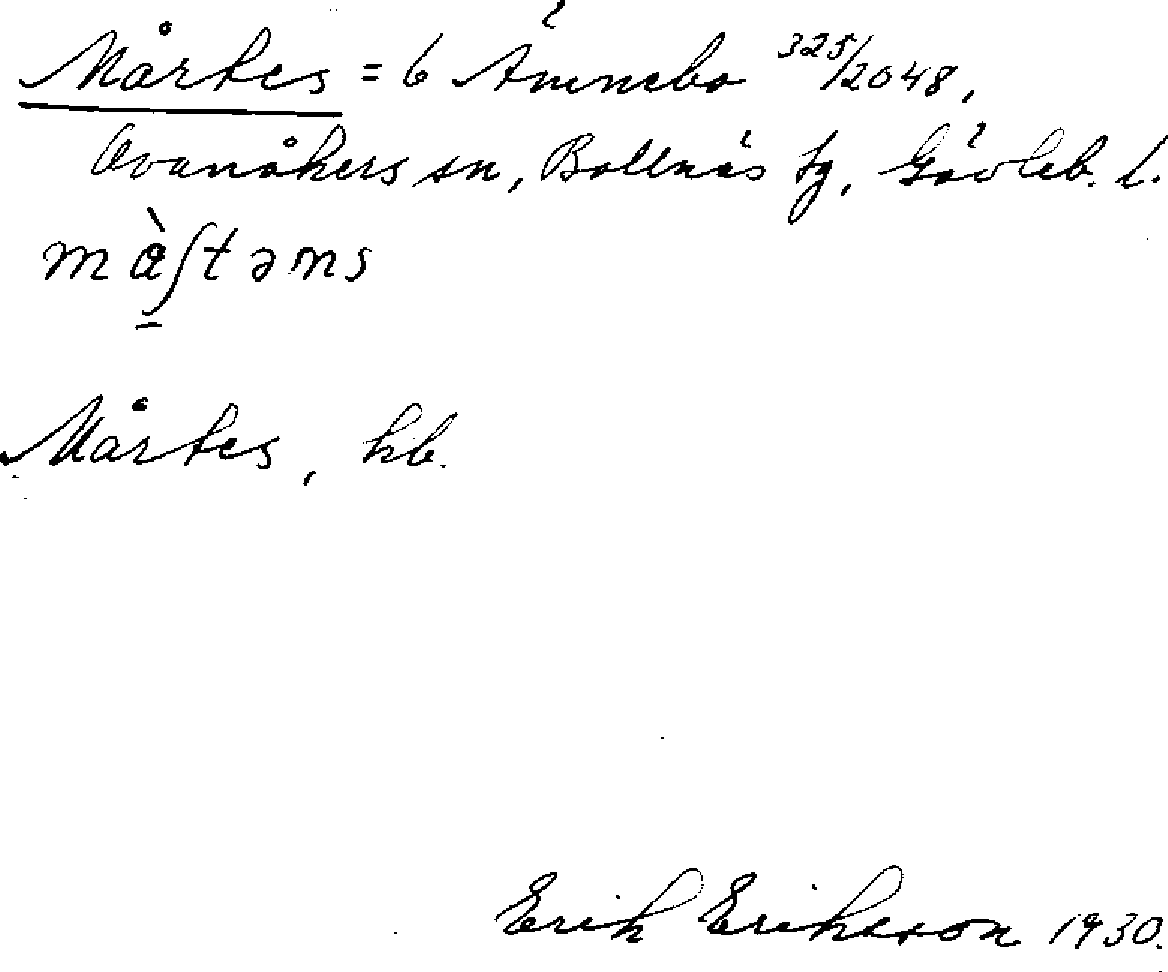 Mårtes = 6 Ämnebo 325/2048,
Ovanåkers sn, Bollnäs tg, Gävleb. l.
Mårtes, kb.
Erik Eriksson 1930.